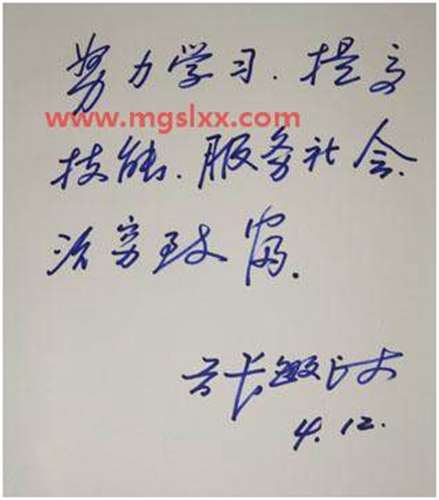 努力学习.提高
www.mgslxx.com
技能.服务社会.
治穷致富.
张
4.12.